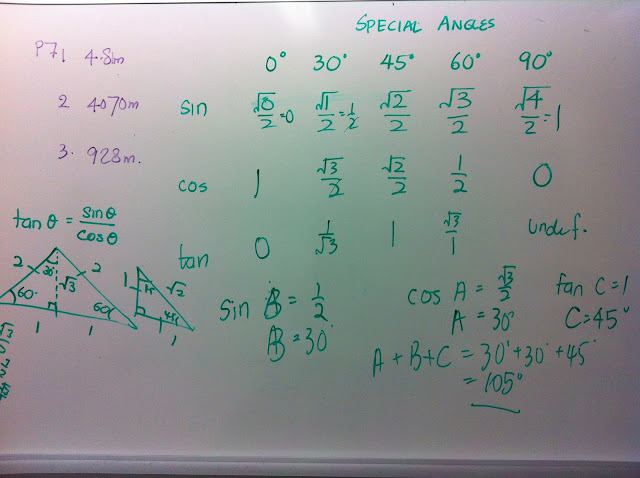 SPECIAL ANGLES
P71 4.81m
2 4.070m
3. 928m.
0° 30° 45° 60° 90°
sin √0/2=0 √1/2=1/2 √2/2 √3/2 √4/2=1
cos 1 √3/2 √2/2 1/2 0
tan 0 1/√3 1 √3/1 undef.
tan θ = sinθ/cosθ
2 30° √3 2 60° 60° 1 1
1 45 √2 45° 1
sin B = 1/2
B = 30°
cos A = √3/2
A = 30°
tan C = 1
C = 45°
A + B + C = 30° + 30° + 45°
= 105°